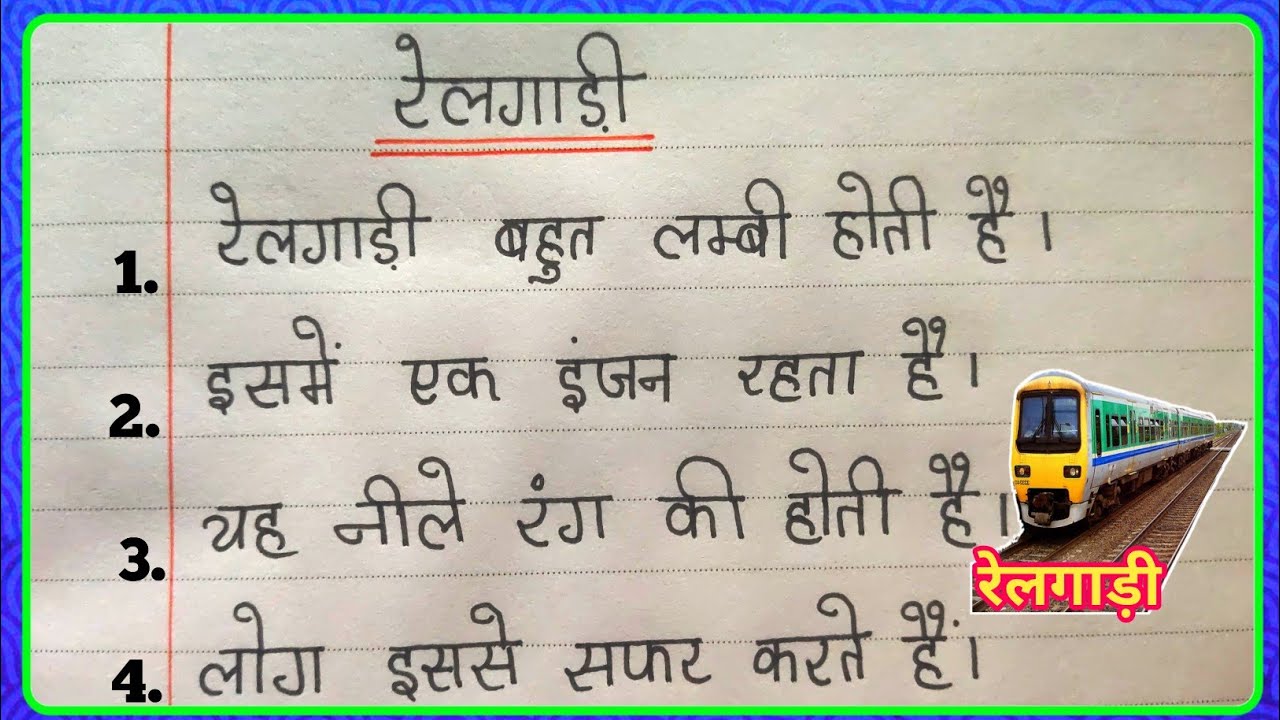 रेलगाड़ी
1. रेलगाड़ी बहुत लम्बी होती है।
2. इसमें एक इंजन रहता है।
3. यह नीले रंग की होती है।
रेलगाड़ी
4. लोग इससे सफर करते हैं।